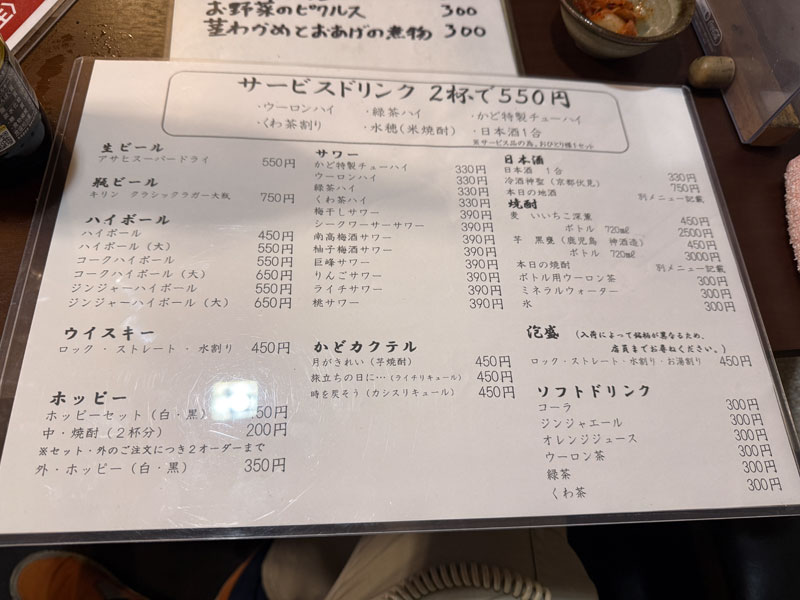 お野菜のピクルス 300
茎わかめとおあげの煮物 300
サービスドリンク 2杯で550円
・ウーロンハイ ・緑茶ハイ ・かど特製チューハイ
・くわ茶割り ・水穂(米焼酎) ・日本酒1合
※サービス品の為、おひとり様1セット
生ビール
アサヒスーパードライ 550円
瓶ビール
キリン クラシックラガー大瓶 750円
ハイボール
ハイボール 450円
ハイボール(大) 550円
コークハイボール 550円
コークハイボール(大) 650円
ジンジャーハイボール 550円
ジンジャーハイボール(大) 650円
ウイスキー
ロック・ストレート・水割り 450円
ホッピー
ホッピーセット(白・黒) 50円
中・焼酎(2杯分) 200円
※セット・外のご注文につき2オーダーまで
外・ホッピー(白・黒) 350円
サワー
かど特製チューハイ 330円
ウーロンハイ 330円
緑茶ハイ 330円
くわ茶ハイ 330円
梅干しサワー 390円
シークワーサーサワー 390円
南高梅酒サワー 390円
柚子梅酒サワー 390円
巨峰サワー 390円
りんごサワー 390円
ライチサワー 390円
桃サワー 390円
かどカクテル
月がきれい(芋焼酎) 450円
旅立ちの日に…(ライチリキュール) 450円
時を戻そう(カシスリキュール) 450円
日本酒
日本酒 1合 330円
冷酒神聖(京都伏見) 750円
本日の地酒 別メニュー記載
焼酎
麦 いいちこ深薫 450円
ボトル 720ml 2500円
芋 黒甕(鹿児島 神酒造) 450円
ボトル 720ml 3000円
本日の焼酎 別メニュー記載
ボトル用ウーロン茶 300円
ミネラルウォーター 300円
氷 300円
泡盛 (入荷によって銘柄が異なるため、
店員までお尋ねください。)
ロック・ストレート・水割り・お湯割り 450円
ソフトドリンク
コーラ 300円
ジンジャエール 300円
オレンジジュース 300円
ウーロン茶 300円
緑茶 300円
くわ茶 300円